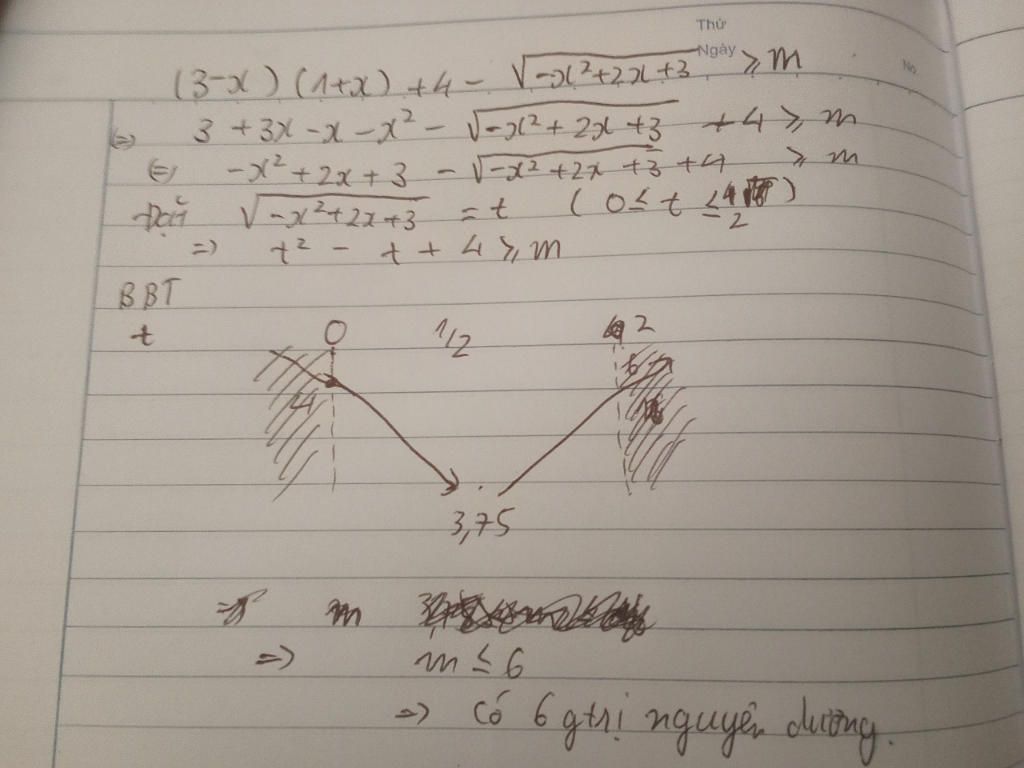 Thứ
Ngày
No.
(3-x)(1+x) + 4 - √(-x²+2x+3) ≥ m
⇔ 3 + 3x - x - x² - √(-x² + 2x + 3) + 4 ≥ m
⇔ -x² + 2x + 3 - √(-x² + 2x + 3) + 4 ≥ m
Đặt √(-x²+2x+3) = t ( 0 ≤ t ≤ 2 )
⇒ t² - t + 4 ≥ m
BBT
t 0 1/2 2
4 6
3,75
⇒ m
⇒ m ≤ 6
⇒ có 6 gtrị nguyên dương.